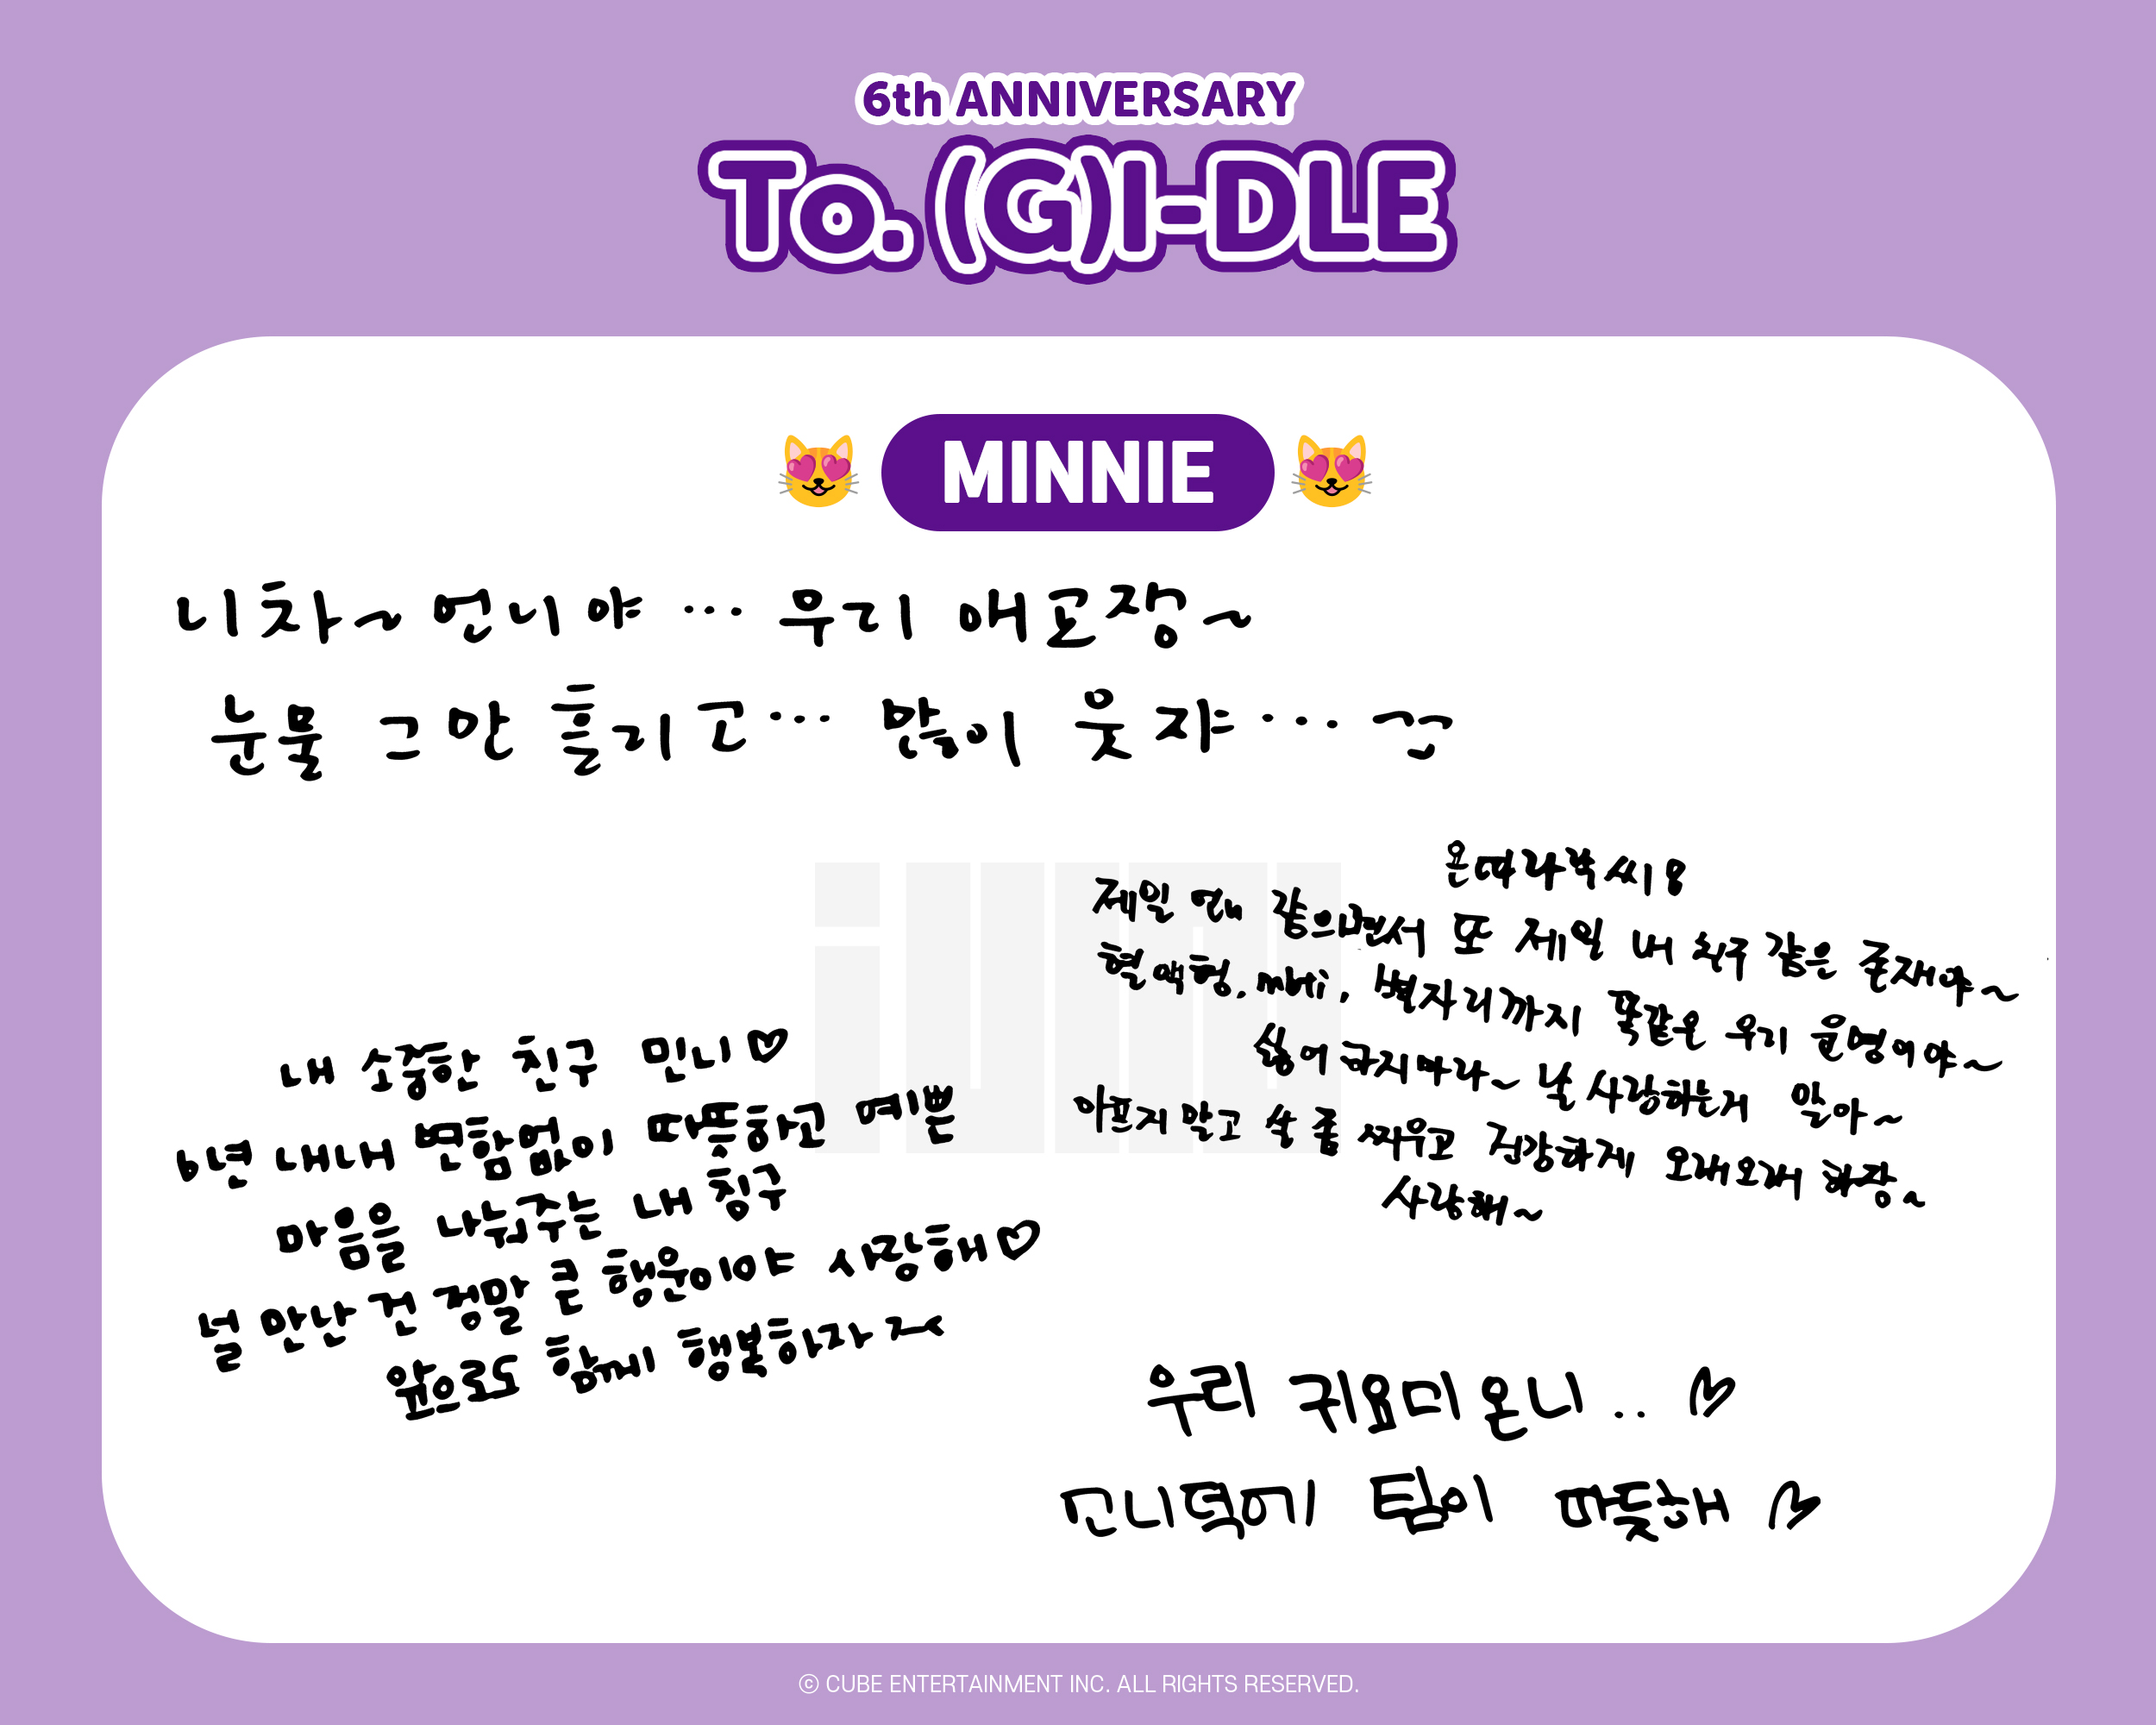 6th ANNIVERSARY
To. (G)I-DLE
MINNIE
니차~ 언니야 ... 우리 애교쟁~
눈물 그만 흘리고... 많이 웃쟈...
내 소중한 친구 민니♡
6년 내내 변함없이 따뜻하고 예쁜
마음을 나눠주는 내 친구
널 만난 건 정말 큰 행운이야 사랑해♡
앞으로도 함께 행복하자~
제일 같으면서 또 제일 내 친구 같은 존재야~
혈액형, mbti, 별자리까지 똑같은 우리 운명이야~
싫어 하지마라~ 날 사랑하는거 알아~
아프지 말고 살 좀 찌우고 건강하게 오래오래 화장~
사랑해~
우리 귀요미 온니.. ♡
모니덕에 팀이 따뜻해 ♡
© CUBE ENTERTAINMENT INC. ALL RIGHTS RESERVED.